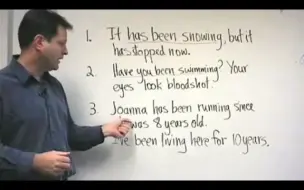 1. It has been snowing, but it
has stopped now.
2. Have you been swimming? Your
eyes look bloodshot.
3. Joanna has been running since
was 8 years old.
I've been living here for 10 years.